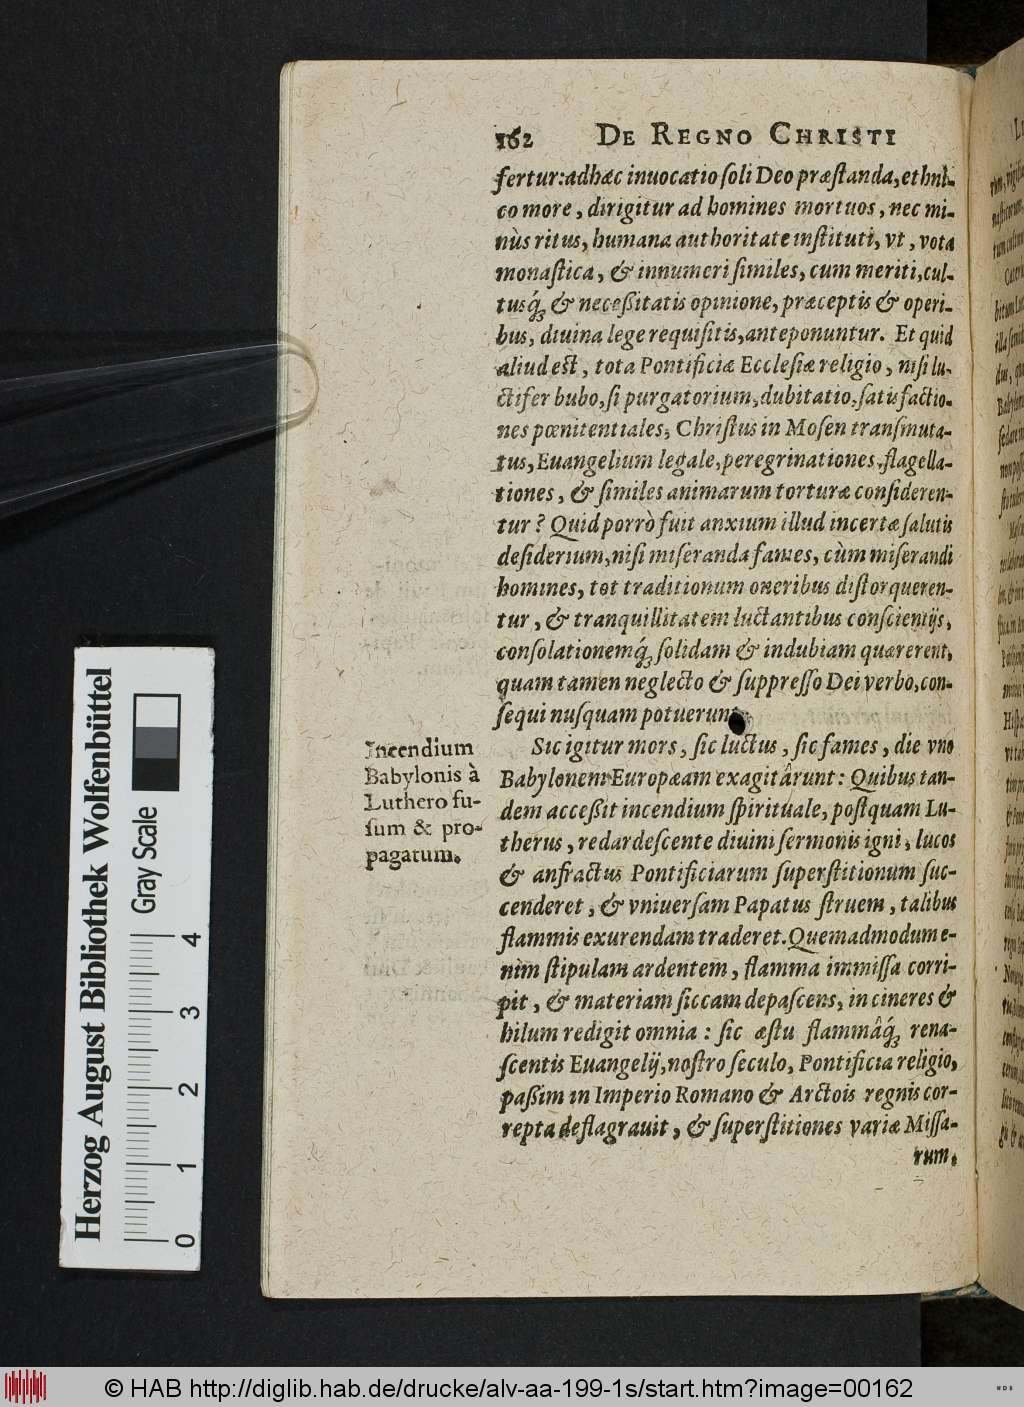 162 DE REGNO CHRISTI
fertur: adhæc inuocatio soli Deo præstanda, ethni-
co more, dirigitur ad homines mortuos, nec mi-
nùs ritus, humana authoritate instituti, vt, vota
monastica, & innumeri similes, cum meriti, cul-
tusq́; & necessitatis opinione, præceptis & operi-
bus, diuina lege requisitis, anteponuntur. Et quid
aliud est, tota Pontificiæ Ecclesiæ religio, nisi lu-
ctifer bubo, si purgatorium, dubitatio, satisfactio-
nes pœnitentiales, Christus in Mosen transmuta-
tus, Euangelium legale, peregrinationes, flagella-
tiones, & similes animarum torturæ consideren-
tur? Quid porrò fuit anxium illud incertæ salutis
desiderium, nisi miseranda fames, cùm miserandi
homines, tot traditionum oneribus distorqueren-
tur, & tranquillitatem luctantibus conscientijs,
consolationemq́; solidam & indubiam quærerent,
quam tamen neglecto & suppresso Dei verbo, con-
sequi nusquam potuerunt.
Incendium
Babylonis à
Luthero fu-
sum & pro-
pagatum.
Sic igitur mors, sic luctus, sic fames, die vno
Babylonem Europæam exagitârunt: Quibus tan-
dem accessit incendium spirituale, postquam Lu-
therus, redardescente diuini sermonis igni, lucos
& anfractus Pontificiarum superstitionum suc-
cenderet, & vniuersam Papatus struem, talibus
flammis exurendam traderet. Quemadmodum e-
nim stipulam ardentem, flamma immissa corri-
pit, & materiam siccam depascens, in cineres &
hilum redigit omnia: sic æstu flammâq́; rena-
scentis Euangelij, nostro seculo, Pontificia religio,
passim in Imperio Romano & Arctois regnis cor-
repta deflagrauit, & superstitiones variæ Missa-
rum,
Herzog August Bibliothek Wolfenbüttel
Gray Scale
0 1 2 3 4
© HAB http://diglib.hab.de/drucke/alv-aa-199-1s/start.htm?image=00162